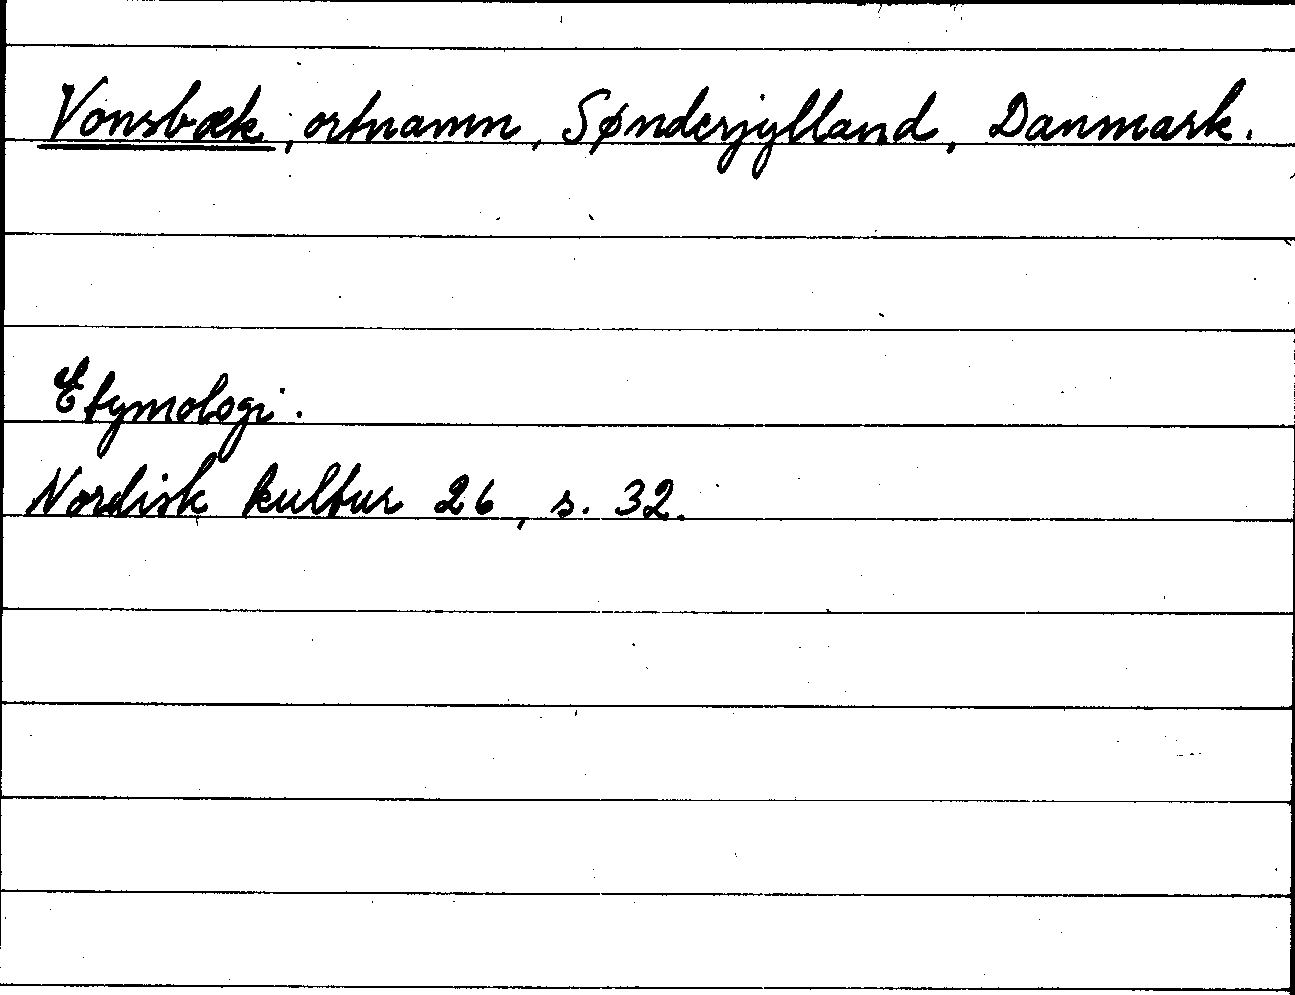 Vonsbæk, ortnamn, Sønderjylland, Danmark.
Etymologi.
Nordisk kultur 26, s. 32.